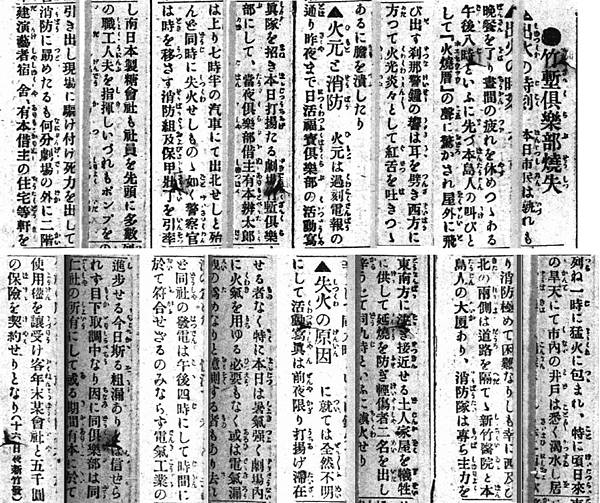 ●竹塹倶樂部燒失
▲出火の時刻　本日市民は孰れも
晩餐を了へ晝間の疲れを休めつゝある
午後八時といふに先づ本島人の叫びと
して『火燒厝』の聲に驚かされ屋外に飛
び出す刹那警鐘の響は耳を劈き西方に
方つて火焰炎々として紅舌を吐きつゝ
あるに膽を潰したり
▲火元と消防　火元は過刻電報の
通り昨夜まで日活福寶倶樂部の活動寫
眞隊を招き本日打揚たる劇場竹塹倶樂
部にして、當夜倶樂部借主有本辨太郎
は上り七時半の汽車にて出北せしと殆
んど同時に失火せしものゝ如く警察官
は時を移さず消防組及保甲壯丁を引率
し南日本製糖會社も社員を先頭に多數
の職工人夫を指揮しいづれもポンプを
引き出して現場に驅け付け死力を出して
消防に努めたるも何分劇場の外に二階
建演藝者宿舍、有本借主の住宅等軒を
列ね一時に猛火に包まれ、特に頃日來
の旱天にて市内の井戸は悉く渴水し居
り消防極めて困難なりしも幸に西及
北の兩側は道路を隔てゝ新竹醫院と本
島人の大厦あり、消防隊は專ら主力を
東南方に注ぎ接近せる土人家屋を犧牲
に供して延燒を防ぎ輕傷者一名を出し
うして同九時といふに鎭火せり
▲失火の原因　に就ては全然不明
にして活動寫眞は前夜限り打揚げ滯在
せる者なく特に本日は暑氣強く劇場内
に火氣を用ゆる必要もなく或は電氣漏
の爲めなりと憶測する者もあり去れ
ど同社の發電は午後四時にして時間に
於て符合せざるのみならず電氣工業の
進步せる今日斯る粗漏ありとは信せら
れず目下取調中なり因に同倶樂部は同
仁社の所有にして或る期間有本に於て
使用權を讓受け客年末某會社と五千圓
の保險を契約せりとなり（十六日代新竹發）